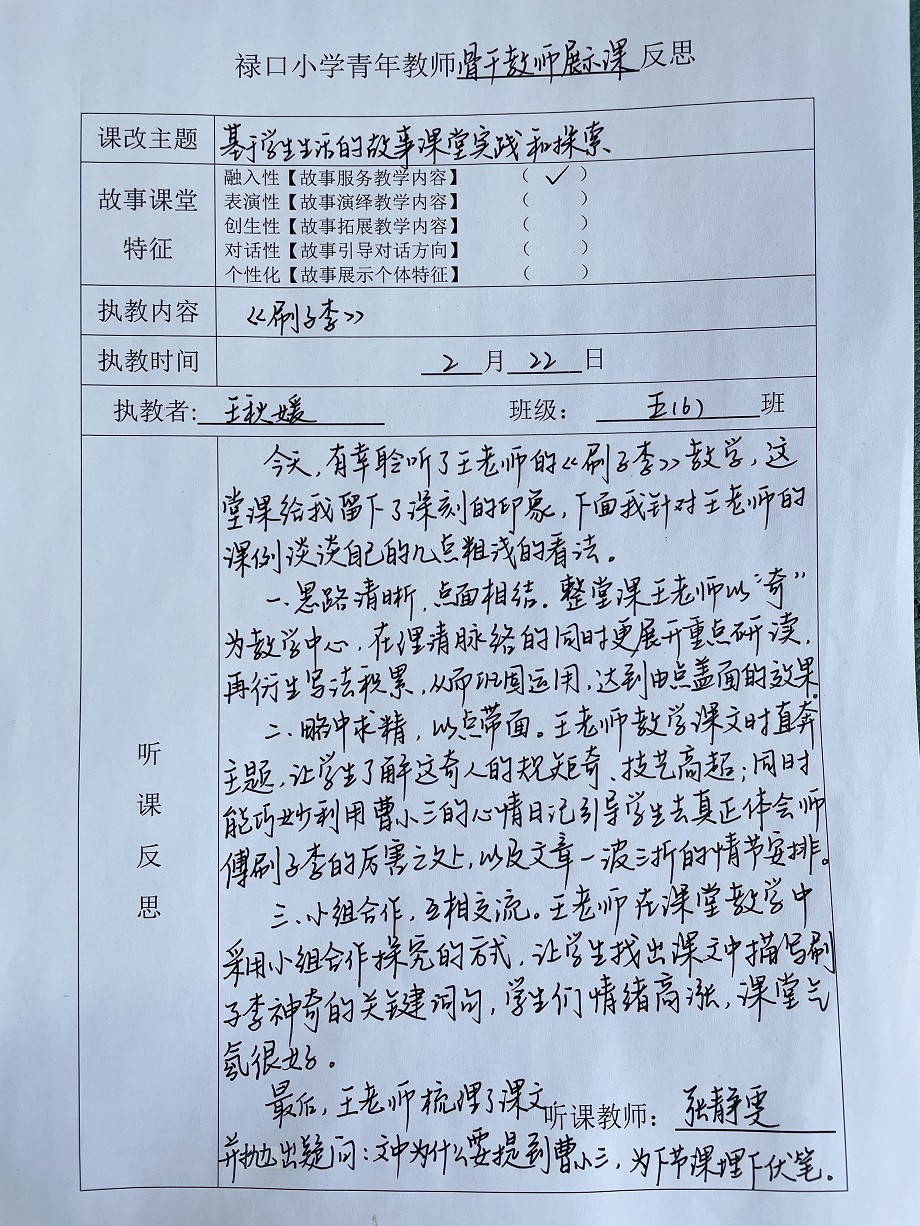 禄口小学青年教师骨干教师展示课反思
课改主题 基于学生生活的故事课堂实践和探索
故事课堂特征
融入性【故事服务教学内容】 （ ✓ ）
表演性【故事演绎教学内容】 （ ）
创生性【故事拓展教学内容】 （ ）
对话性【故事引导对话方向】 （ ）
个性化【故事展示个体特征】 （ ）
执教内容 《刷子李》
执教时间 2月22日
执教者: 王秋媛 班级: 五(6)班
听课反思
今天,有幸聆听了王老师的《刷子李》教学,这
堂课给我留下了深刻的印象,下面我针对王老师的
课例谈谈自己的几点粗浅的看法。
一、思路清晰,点面相结。整堂课王老师以“奇”
为教学中心,在理清脉络的同时更展开重点研读,
再衍生写法积累,从而巩固运用,达到由点盖面的效果。
二、略中求精,以点带面。王老师教学课文时直奔
主题,让学生了解这奇人的规矩奇、技艺高超;同时
能巧妙利用曹小三的心情日记引导学生去真正体会师
傅刷子李的厉害之处,以及文章一波三折的情节安排。
三、小组合作,互相交流。王老师在课堂教学中
采用小组合作探究的方式,让学生找出课文中描写刷
子李神奇的关键词句,学生们情绪高涨,课堂气
氛很好。
最后,王老师梳理了课文
听课教师: 张静雯
并抛出疑问:文中为什么要提到曹小三,为下节课埋下伏笔。